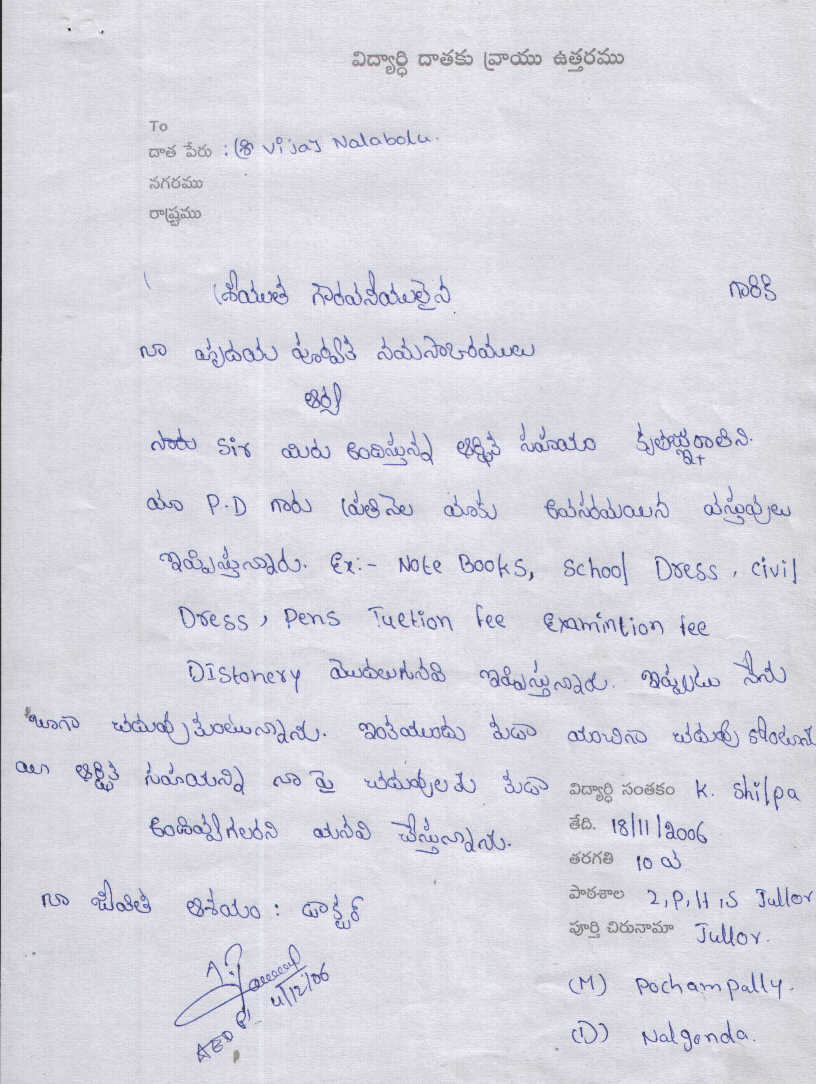 విద్యార్థి దాతకు వ్రాయు ఉత్తరము
To
దాత పేరు : శ్రీ Vijay Nalabolu.
నగరము
రాష్ట్రము
శ్రీయుత గౌరవనీయులైన గారికి
నా హృదయ పూర్వక నమస్కారములు
ఆర్య
సారు Sir మీరు అందిస్తున్న ఆర్థిక సహయం
మా P.D గారు ప్రతి నెల మాకు అవసరమయిన వస్తువులు
ఇప్పిస్తున్నారు. Ex:- Note Books, School Dress, civil
Dress, Pens Tuetion fee Examintion fee
DIStonery మొదలుగునవి ఇప్పిస్తున్నారు. ఇప్పుడు నేను
బాగా చదువు కుంటున్నాను. ఇంకముందు కుడా
మా ఆర్థిక సహయాన్ని నా పై చదువులకు కుడా
అందివ్వగలరని మనవి చేస్తున్నాను.
విద్యార్థి సంతకం K. Shilpa
తేది. 18/11/2006
తరగతి 10 వ
పాఠశాల Z,P,H,S Jullor
పూర్తి చిరునామా Jullor.
(M) Pochampally.
(D) Nalgonda.
నా జీవిత ఆశయం : డాక్టర్
4/12/06